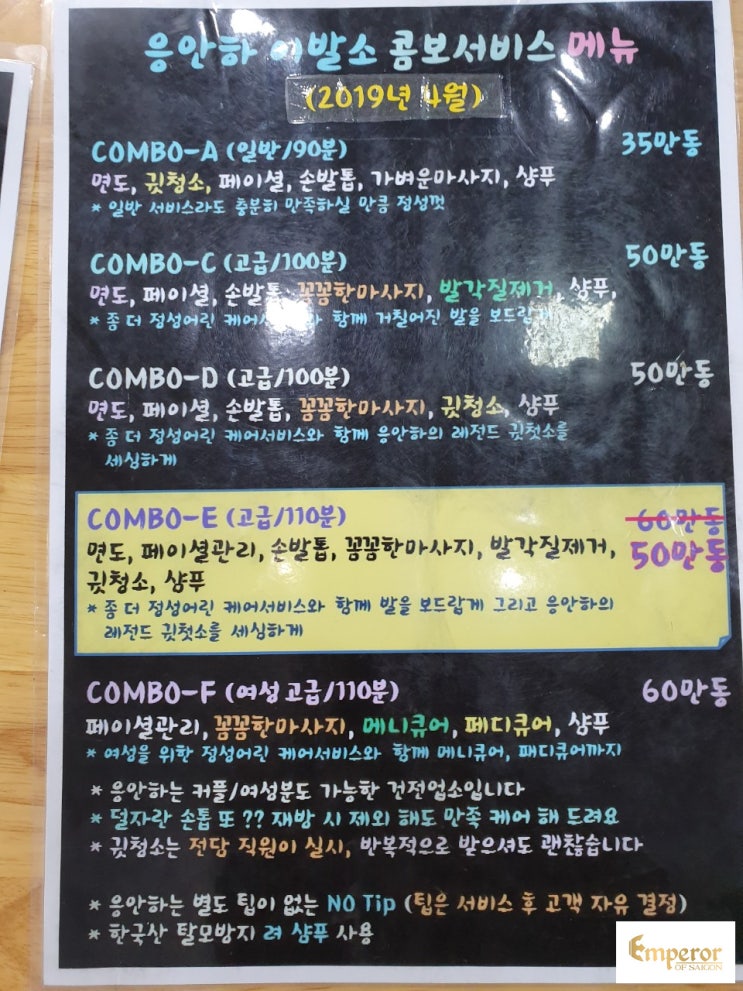 응안하 이발소 콤보서비스 메뉴
(2019년 4월)
COMBO-A (일반/90분) 35만동
면도, 귓청소, 페이셜, 손발톱, 가벼운마사지, 샴푸
* 일반 서비스라도 충분히 만족하실 만큼 정성껏
COMBO-C (고급/100분) 50만동
면도, 페이셜, 손발톱, 꼼꼼한마사지, 발각질제거, 샴푸,
* 좀 더 정성어린 케어서비스와 함께 거칠어진 발을 보드랍게
COMBO-D (고급/100분) 50만동
면도, 페이셜, 손발톱, 꼼꼼한마사지, 귓청소, 샴푸
* 좀 더 정성어린 케어서비스와 함께 응안하의 레전드 귓청소를
세심하게
COMBO-E (고급/110분) 60만동
면도, 페이셜관리, 손발톱, 꼼꼼한마사지, 발각질제거, 50만동
귓청소, 샴푸
* 좀 더 정성어린 케어서비스와 함께 발을 보드랍게 그리고 응안하의
레전드 귓청소를 세심하게
COMBO-F (여성고급/110분) 60만동
페이셜관리, 꼼꼼한마사지, 메니큐어, 페디큐어, 샴푸
* 여성을 위한 정성어린 케어서비스와 함께 메니큐어, 패디큐어까지
* 응안하는 커플/여성분도 가능한 건전업소입니다
* 덜자란 손톱 또 ?? 재방 시 제외 해도 만족 케어 해 드려요
* 귓청소는 전담 직원이 실시, 반복적으로 받으셔도 괜찮습니다
* 응안하는 별도 팁이 없는 NO Tip (팁은 서비스 후 고객 자유 결정)
* 한국산 탈모방지 려 샴푸 사용
Emperor
OF SAIGON